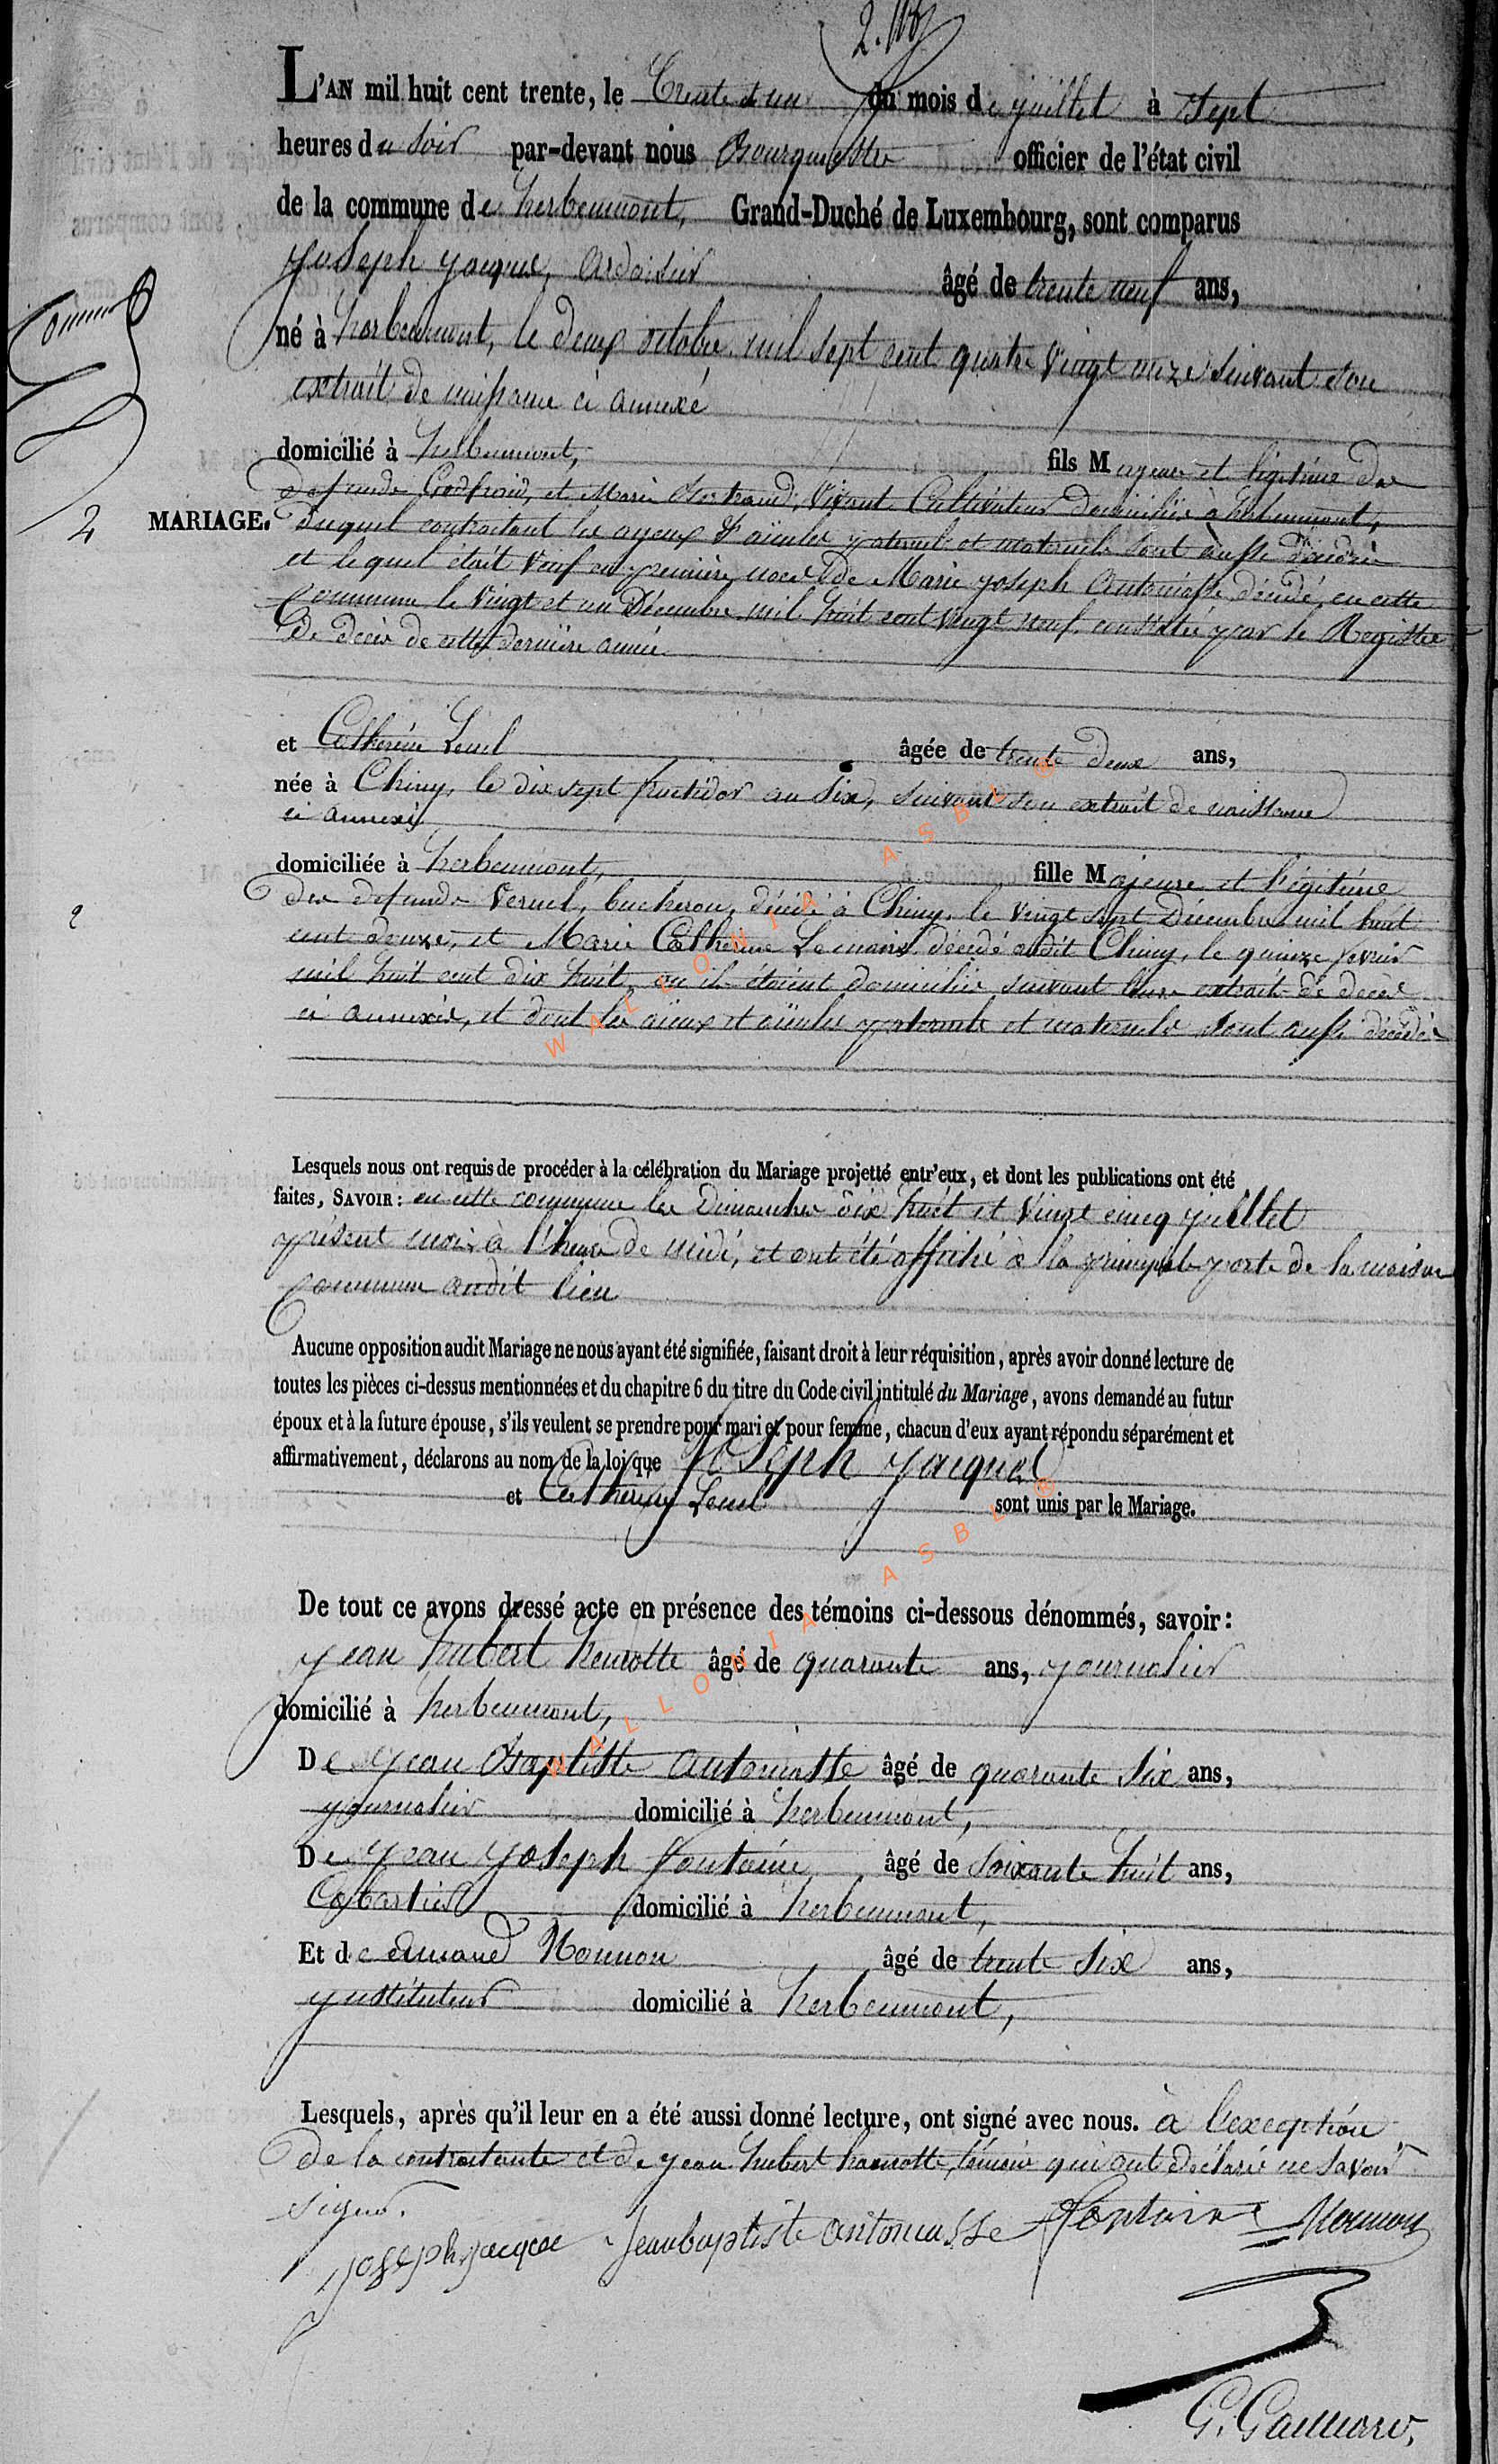 L'AN mil huit cent trente, le trente et un du mois de juillet à sept
heures du soir par-devant nous Bourguestre officier de l'état civil
de la commune de herbeumont, Grand-Duché de Luxembourg, sont comparus
joseph jacque, ardoisier âgé de trente neuf ans,
né à herbeumont, le deux octobre mil sept cent quatre vingt onze suivant son
extrait de naissance ci annexé
domicilié à herbeumont, fils Majeur et légitime des
2 MARIAGE.
defunds Godfroid, et Marie Bertrand, vivant Cultivateur domicilié à herbeumont,
duquel contractant les ayeux et aïeules paternels et maternels sont aussi décédés
et lequel était veuf en première noces de Marie joseph antoinasse décédé en cette
commune le vingt et un Décembre mil huit cent vingt neuf constatée par le Registre
de décès de cette dernière année
et Catherine
âgée de trente deux ans,
née à Chiny, le dix sept fructidor an six, suivant son extrait de naissance
ci annexé
domiciliée à herbeumont, fille Majeure et légitime
des defunds bucheron, décédé à Chiny, le vingt sept Décembre mil huit
cent douze, et Marie Catherine décédé audit Chiny, le quinze janvier
mil huit cent dix huit, ou ils étoient domiciliés suivant leurs extraits de décès
ci annexés, et dont les aïeux et aïeules paternels et maternels sont aussi décédés
2
Lesquels nous ont requis de procéder à la célébration du Mariage projetté entr'eux, et dont les publications ont été
faites, SAVOIR : en cette commune les Dimanches dix huit et vingt cinq juillet
présent mois à l'heure de midi, et ont été affiché à la principale porte de la maison
commune audit lieu
Aucune opposition audit Mariage ne nous ayant été signifiée, faisant droit à leur réquisition, après avoir donné lecture de
toutes les pièces ci-dessus mentionnées et du chapitre 6 du titre du Code civil intitulé du Mariage, avons demandé au futur
époux et à la future épouse, s'ils veulent se prendre pour mari et pour femme, chacun d'eux ayant répondu séparément et
affirmativement, déclarons au nom de la loi que joseph jacque
et Catherine sont unis par le Mariage.
De tout ce avons dressé acte en présence des témoins ci-dessous dénommés, savoir :
jean hubert âgé de quarante ans, journalier
domicilié à herbeumont,
De jean Baptiste antoinasse âgé de quarante six ans,
journalier domicilié à herbeumont,
De jean joseph fontaine âgé de soixante huit ans,
Cabartier domicilié à herbeumont,
Et de âgé de trente six ans,
jnstituteur domicilié à herbeumont,
Lesquels, après qu'il leur en a été aussi donné lecture, ont signé avec nous. à l'exception
de la contractante et de jean hubert témoin qui ont déclaré ne savoir
signer.
joseph jacque jeanbaptiste antoinasse fontaine
WALLONIA ASBL ®
WALLONIA ASBL ®